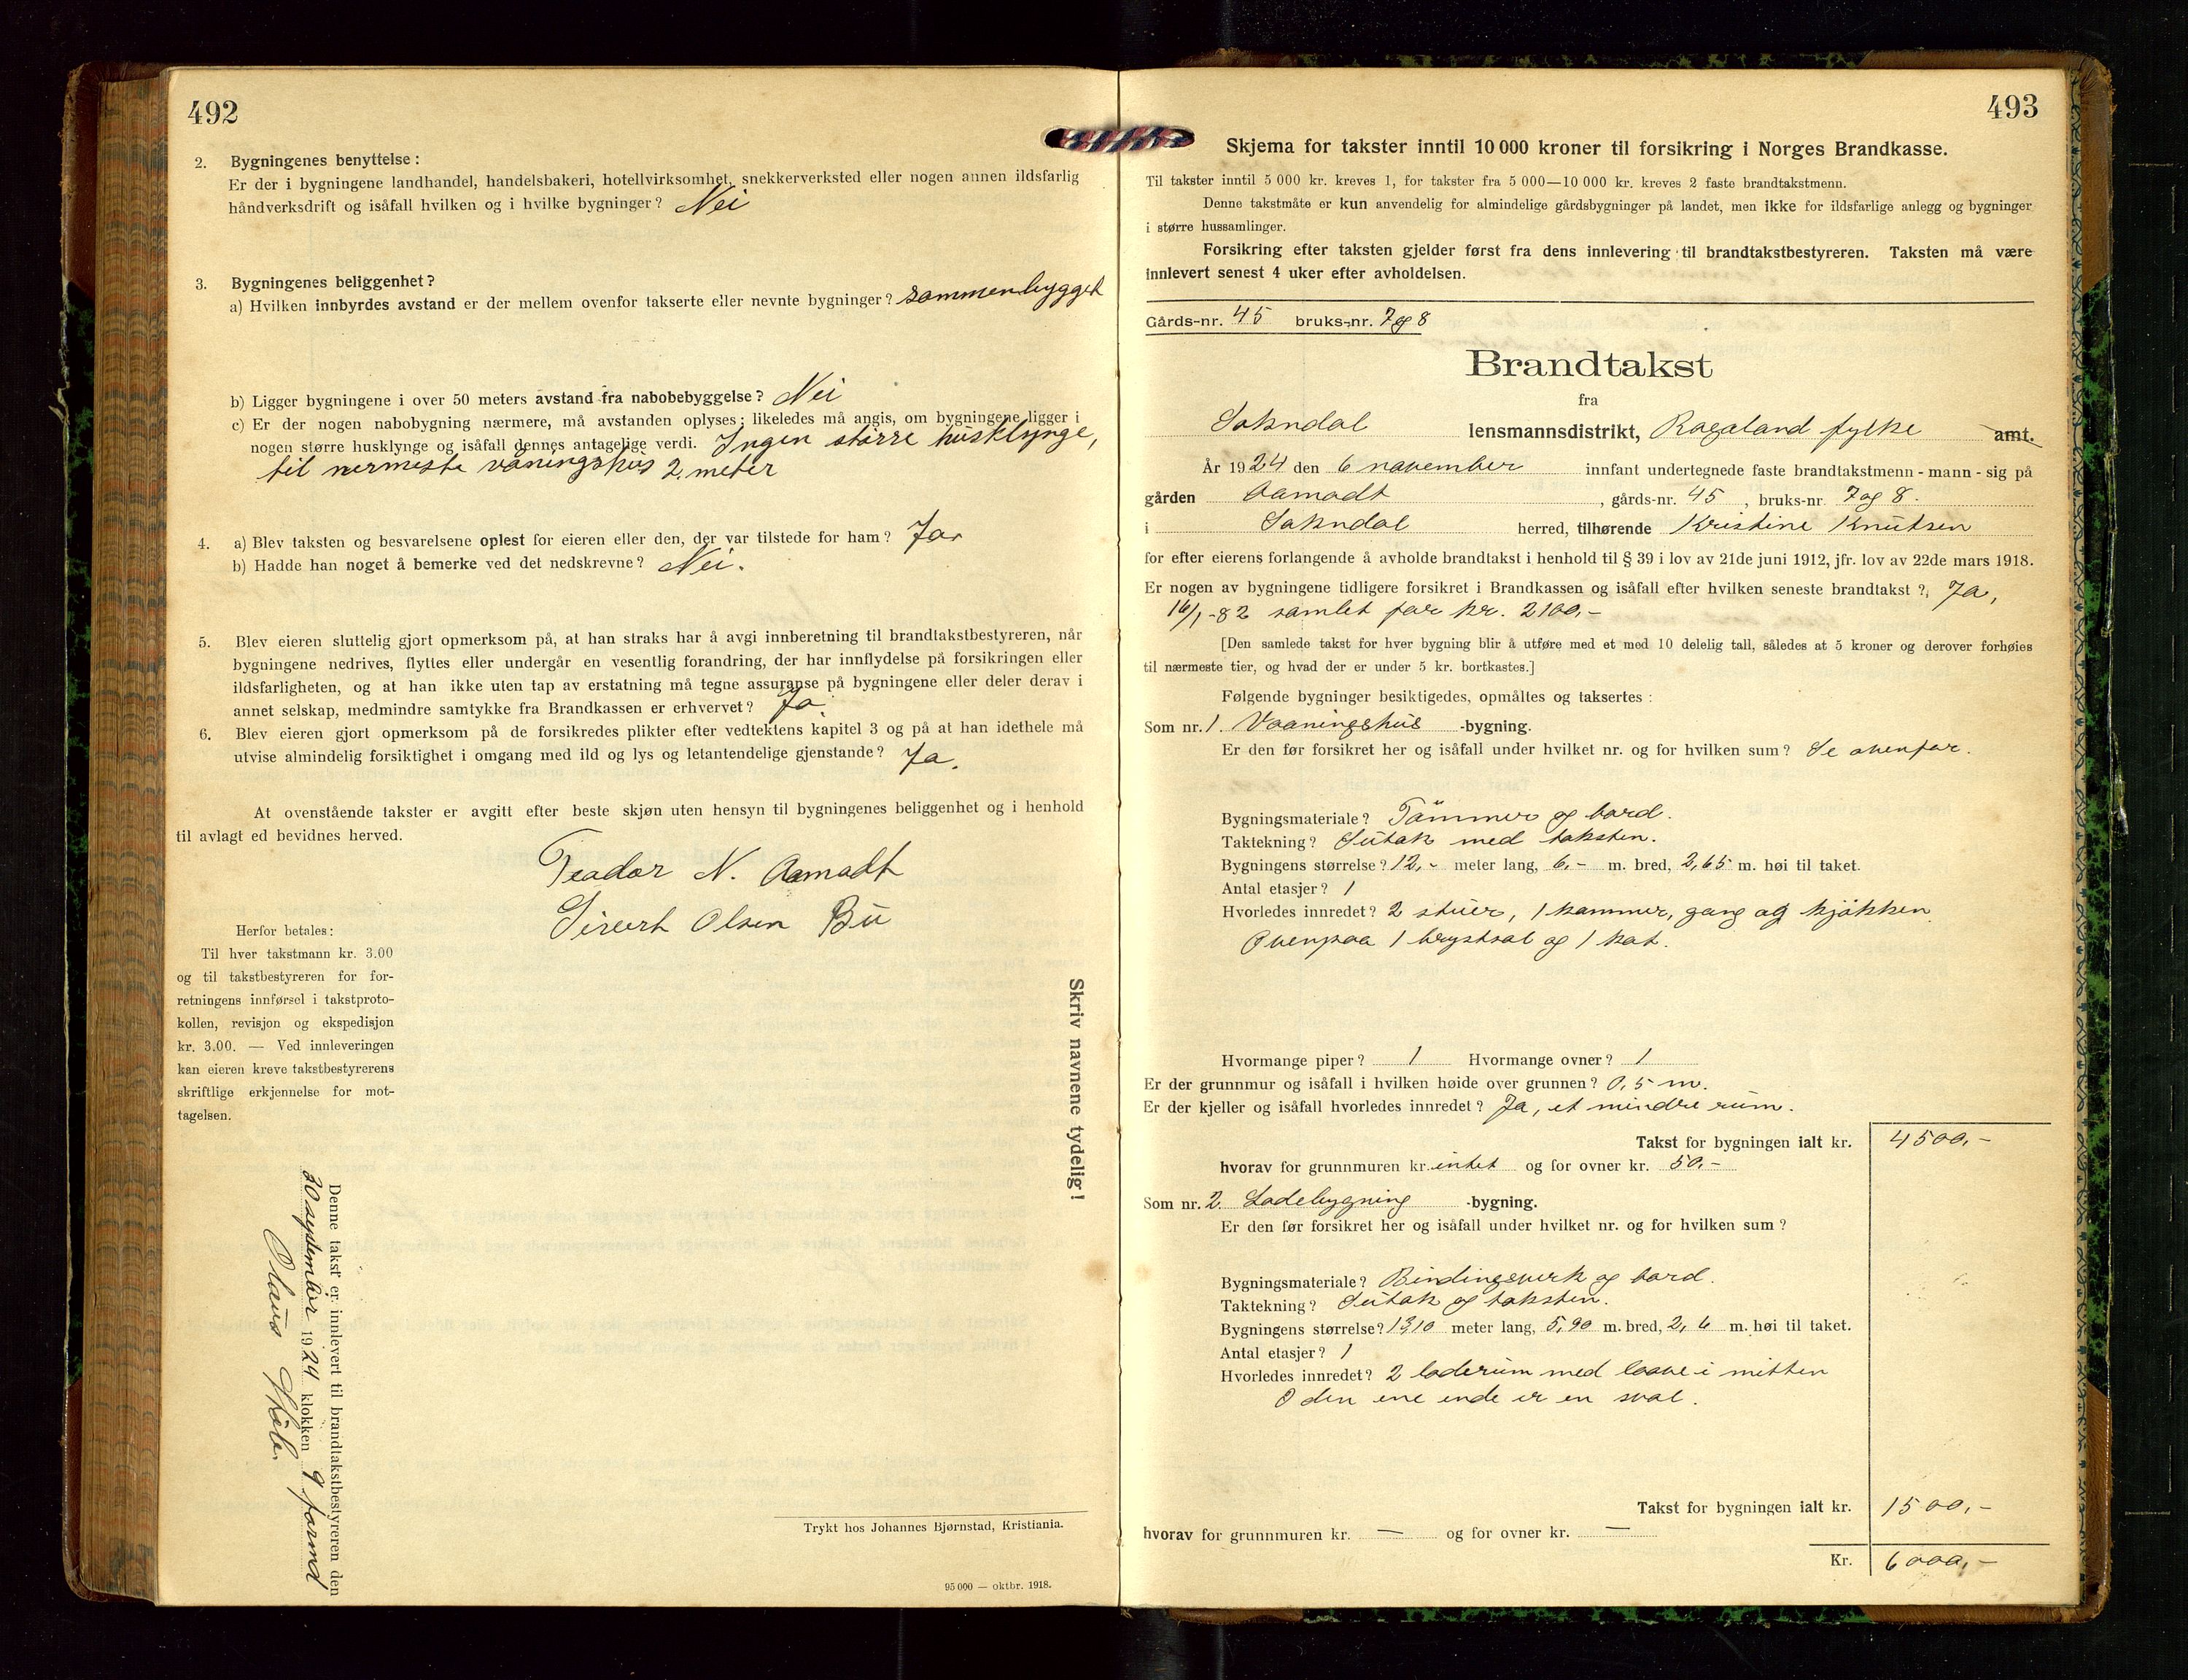 492
2. Bygningenes benyttelse:
Er der i bygningene landhandel, handelsbakeri, hotellvirksomhet, snekkerverksted eller nogen annen ildsfarlig
håndverksdrift og isåfall hvilken og i hvilke bygninger? Nei
3. Bygningenes beliggenhet?
a) Hvilken innbyrdes avstand er der mellem ovenfor takserte eller nevnte bygninger? sammenbygget
b) Ligger bygningene i over 50 meters avstand fra nabobebyggelse? Nei
c) Er der nogen nabobygning nærmere, må avstanden oplyses; likeledes må angis, om bygningene ligger i
nogen større husklynge og isåfall dennes antagelige verdi. Ingen større husklynge,
til nermeste våningshus 2 meter
4. a) Blev taksten og besvarelsene oplest for eieren eller den, der var tilstede for ham? Ja,
b) Hadde han noget å bemerke ved det nedskrevne? Nei.
5. Blev eieren sluttelig gjort opmerksom på, at han straks har å avgi innberetning til brandtakstbestyreren, når
bygningene nedrives, flyttes eller undergår en vesentlig forandring, der har innflydelse på forsikringen eller
ildsfarligheten, og at han ikke uten tap av erstatning må tegne assuranse på bygningene eller deler derav i
annet selskap, medmindre samtykke fra Brandkassen er erhvervet? Ja.
6. Blev eieren gjort opmerksom på de forsikredes plikter efter vedtektens kapitel 3 og på at han idethele må
utvise almindelig forsiktighet i omgang med ild og lys og letantendelige gjenstande? Ja.
At ovenstående takster er avgitt efter beste skjøn uten hensyn til bygningenes beliggenhet og i henhold
til avlagt ed bevidnes herved.
Teodor N. Aamodt
Sivert Olsen Bu
Herfor betales:
Til hver takstmann kr. 3.00
og til takstbestyreren for for-
retningens innførsel i takstproto-
kollen, revisjon og ekspedisjon
kr. 3.00. — Ved innleveringen
kan eieren kreve takstbestyrerens
skriftlige erkjennelse for mot-
tagelsen.
Skriv navnene tydelig!
Denne takst er innlevert til brandtakstbestyreren den
20 september 1924 klokken 9 formd
Trykt hos Johannes Bjørnstad, Kristiania.
95 000 — oktbr. 1918.
493
Skjema for takster inntil 10 000 kroner til forsikring i Norges Brandkasse.
Til takster inntil 5 000 kr. kreves 1, for takster fra 5 000—10 000 kr. kreves 2 faste brandtakstmenn.
Denne takstmåte er kun anvendelig for almindelige gårdsbygninger på landet, men ikke for ildsfarlige anlegg og bygninger
i større hussamlinger.
Forsikring efter taksten gjelder først fra dens innlevering til brandtakstbestyreren. Taksten må være
innlevert senest 4 uker efter avholdelsen.
Gårds-nr. 45 bruks-nr. 7 og 8
Brandtakst
fra
Sokndal lensmannsdistrikt, Rogaland fylke amt.
År 1924 den 6 november innfant undertegnede faste brandtakstmenn - mann - sig på
gården Aamodt, gårds-nr. 45, bruks-nr. 7 og 8.
i Sokndal herred, tilhørende Kristine Knutsen
for efter eierens forlangende å avholde brandtakst i henhold til § 39 i lov av 21de juni 1912, jfr. lov av 22de mars 1918.
Er nogen av bygningene tidligere forsikret i Brandkassen og isåfall efter hvilken seneste brandtakst? Ja,
16/1-82 samlet for kr. 2100,-
[Den samlede takst for hver bygning blir å utføre med et med 10 delelig tall, således at 5 kroner og derover forhøies
til nærmeste tier, og hvad der er under 5 kr. bortkastes.]
Følgende bygninger besiktigedes, opmåltes og taksertes:
Som nr. 1. Vaaningshus -bygning.
Er den før forsikret her og isåfall under hvilket nr. og for hvilken sum? Se ovenfor.
Bygningsmateriale? Tömmer og bord.
Taktekning? Sutak med taksten.
Bygningens størrelse? 12,- meter lang, 6,- m. bred, 2,65 m. høi til taket.
Antal etasjer? 1
Hvorledes innredet? 2 stuer, 1 kammer, gang og kjökken
Ovenpaa 1 brystsal og 1 kot.
Hvormange piper? 1 Hvormange ovner? 1
Er der grunnmur og isåfall i hvilken høide over grunnen? 0,5 m.
Er der kjeller og isåfall hvorledes innredet? Ja, et mindre rum.
Takst for bygningen ialt kr. 4500,-
hvorav for grunnmuren kr. intet og for ovner kr. 50,-
Som nr. 2. Ladebygning -bygning.
Er den før forsikret her og isåfall under hvilket nr. og for hvilken sum?
Bygningsmateriale? Bindingsverk og bord.
Taktekning? Sutak og taksten.
Bygningens størrelse? 13,10 meter lang, 5,90 m. bred, 2,6 m. høi til taket.
Antal etasjer? 1
Hvorledes innredet? 2 laderum med loave i mitten
I den ene ende er en sval.
Takst for bygningen ialt kr. 1500,-
hvorav for grunnmuren kr. — og for ovner kr. —
Kr. 6000,-